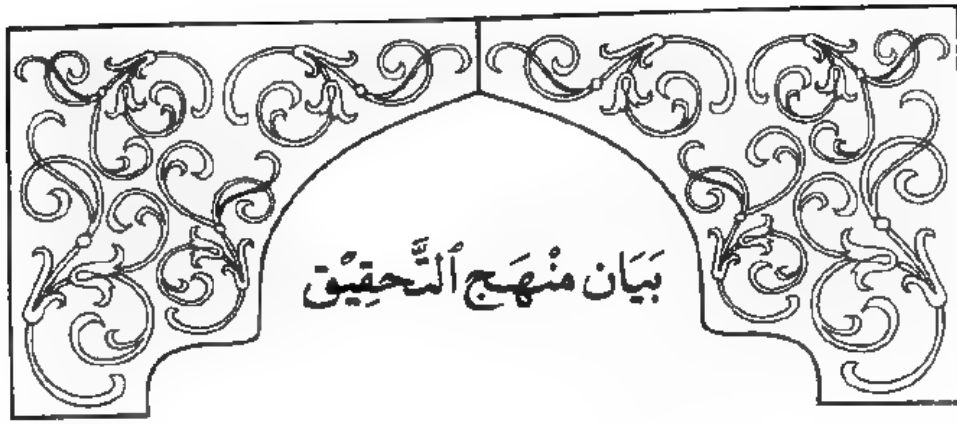 بَيَان مَنْهَج ٱلتَّحقِيْق